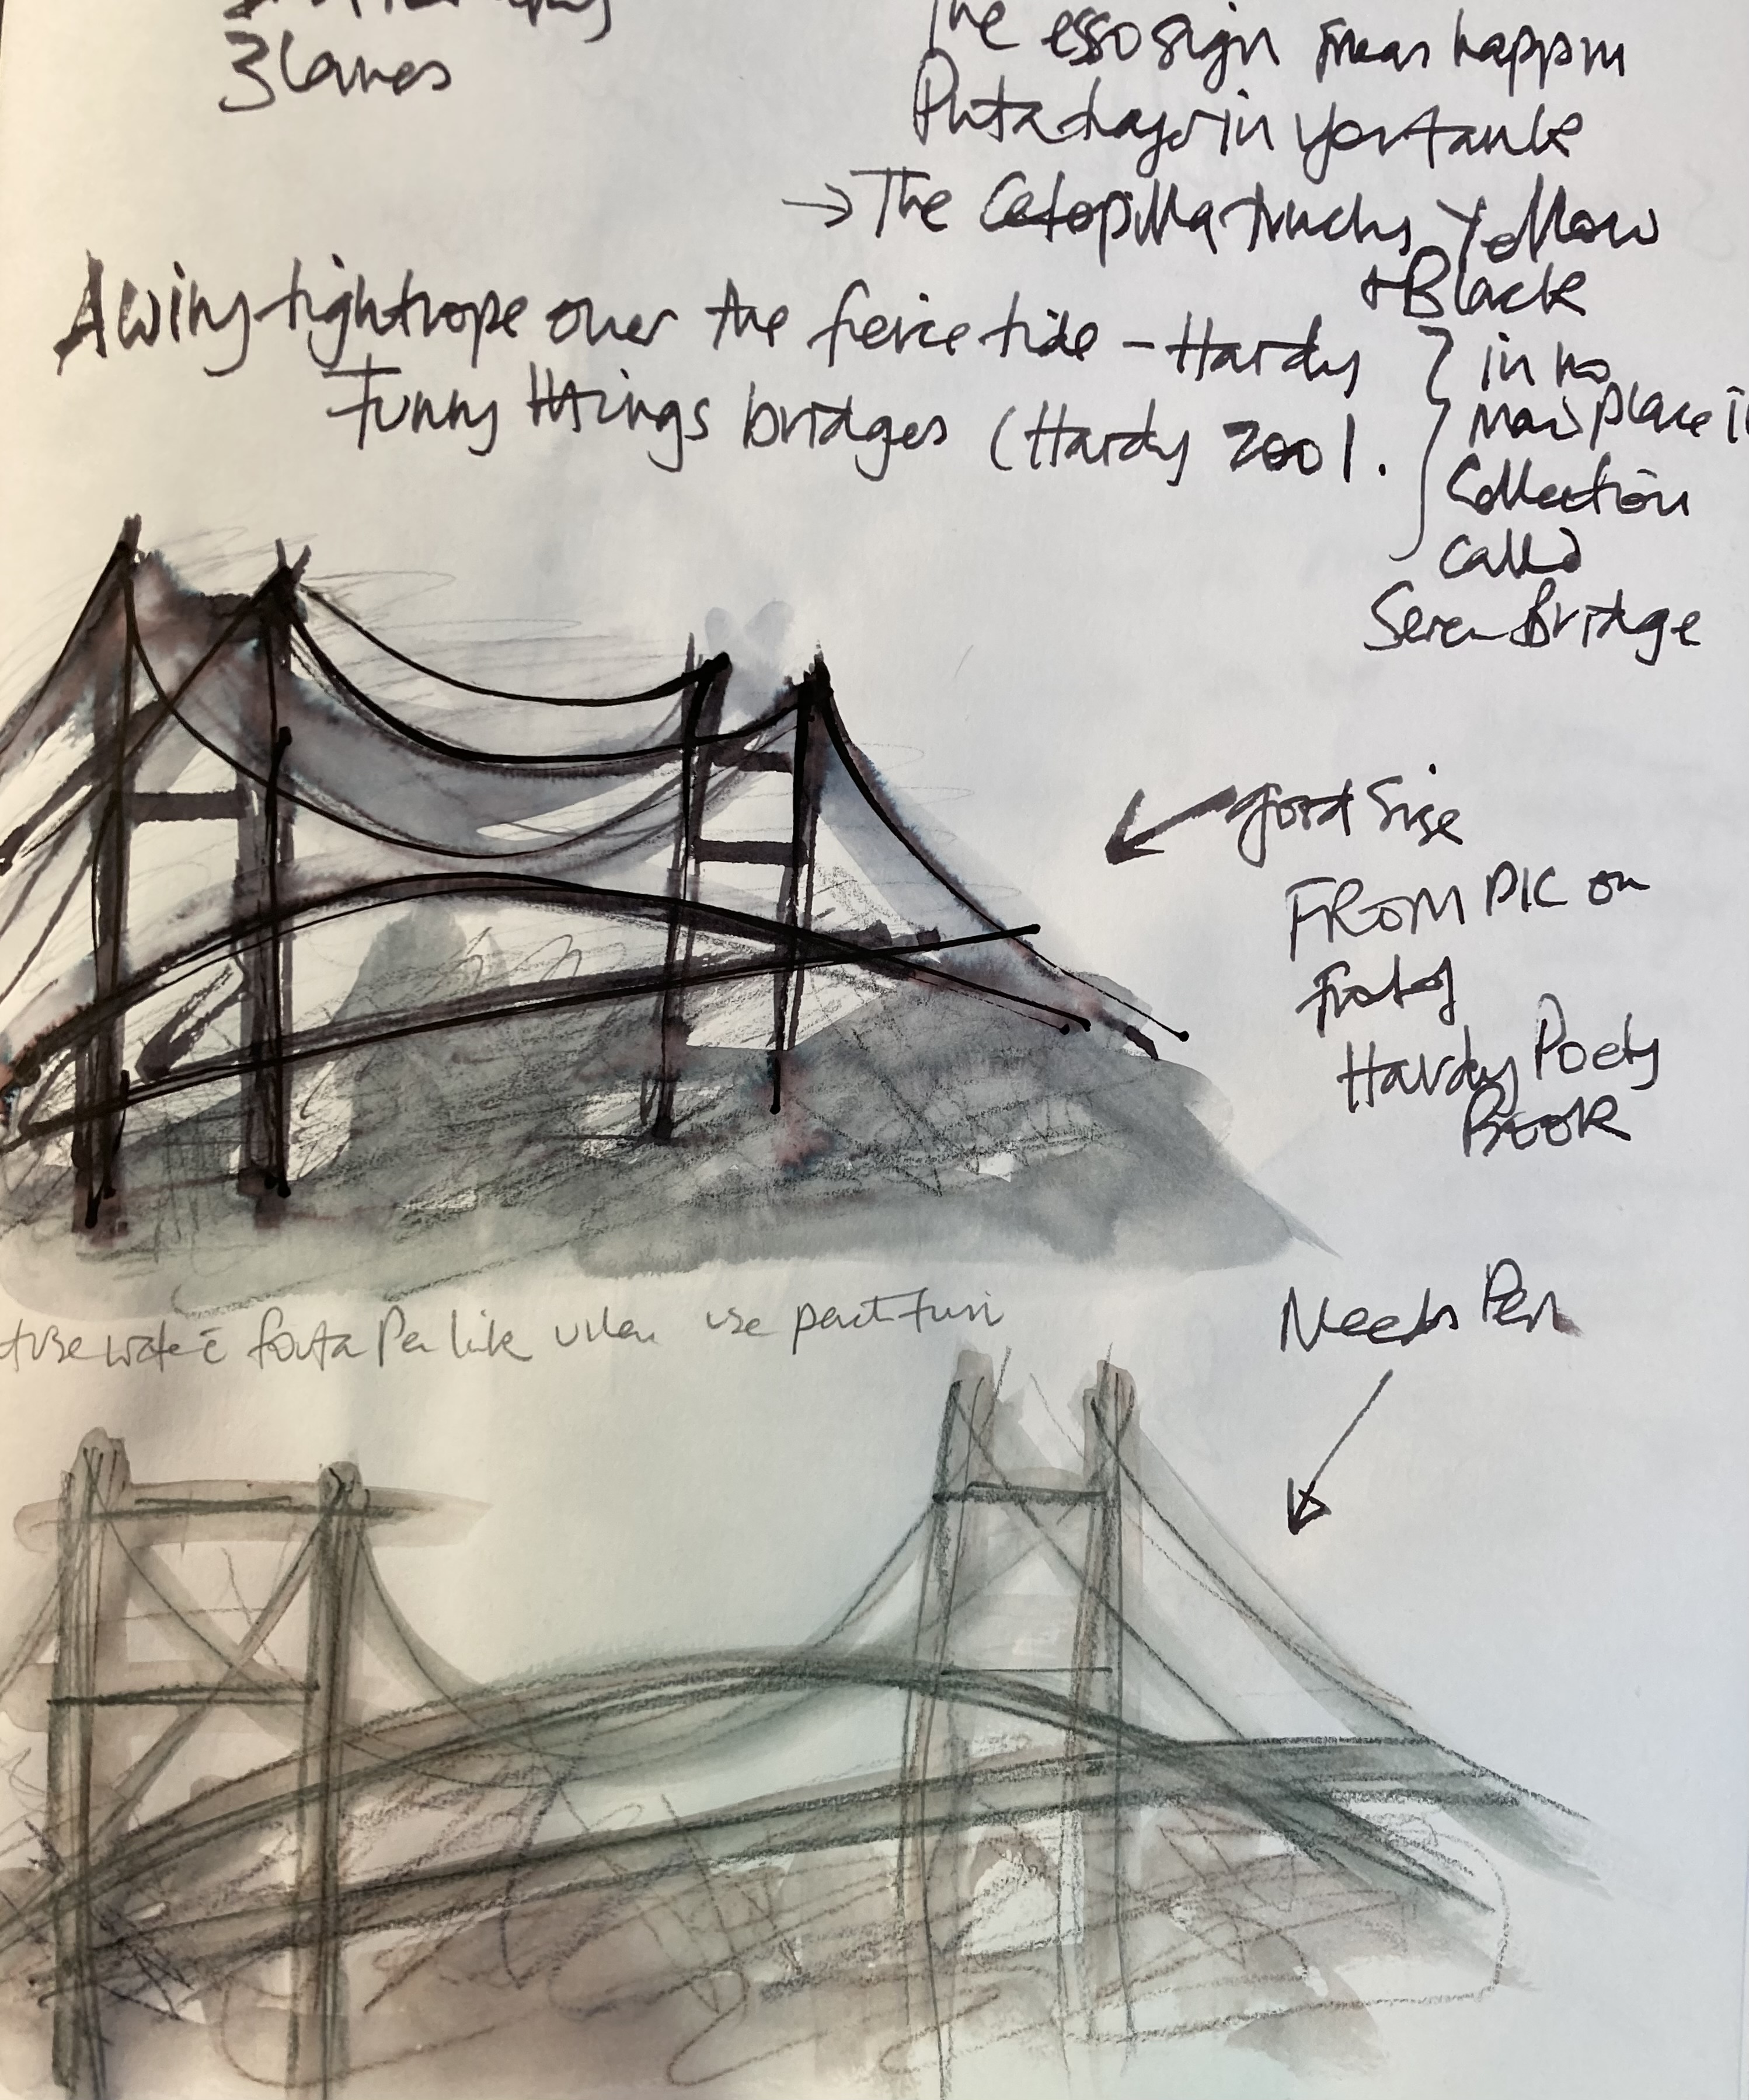 3 lanes
The esso sign means happen
Put a in your tank
→ The trucks Yellow
+ Black
A wiry tightrope over the fierce tide – Hardy
Funny things bridges (Hardy 2001.
in no
man's place in
Collection
called
Severn Bridge
good size
FROM PIC on
front of
Hardy Poety
Book
Needs Pen
Pen like when use